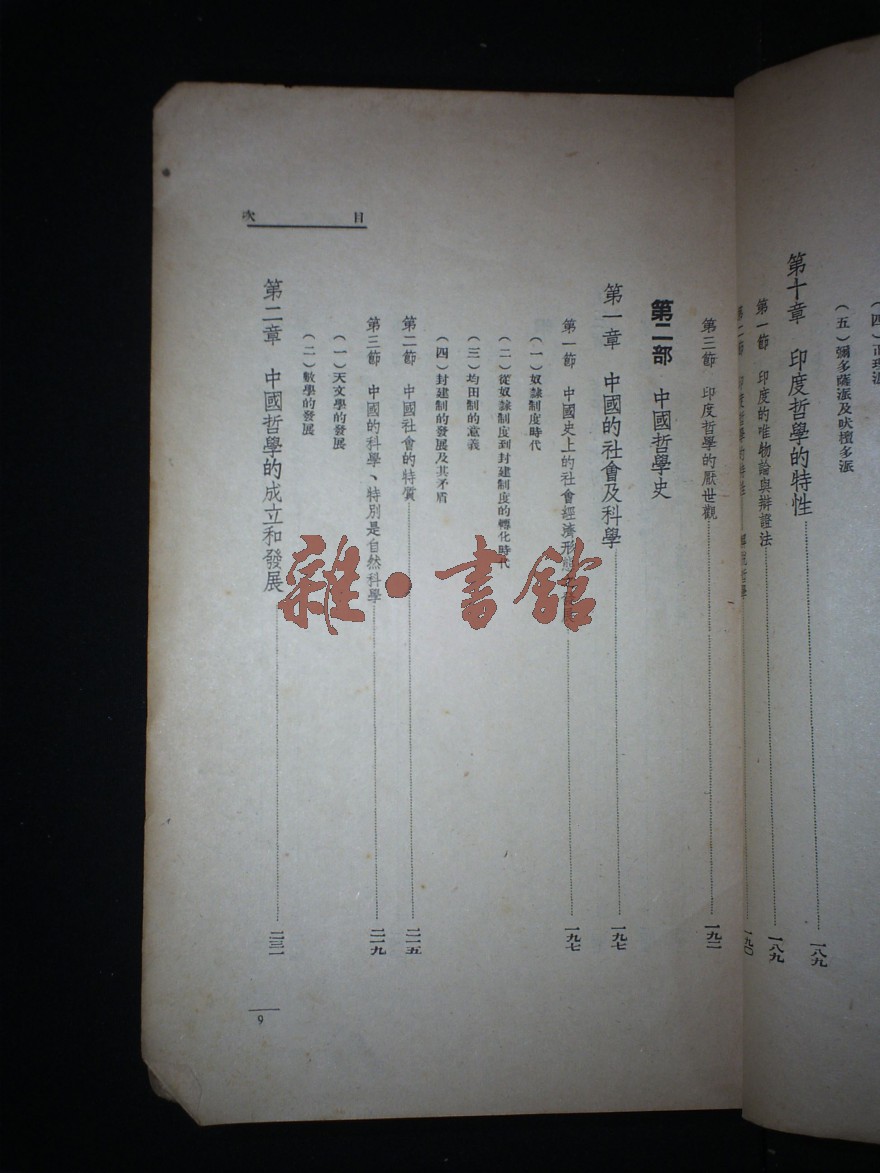 (五)彌多薩派及吠檀多派
第十章 印度哲學的特性 一八九
第一節 印度的唯物論與辯證法 一八九
一九〇
第三節 印度哲學的厭世觀 一九二
第二部 中國哲學史
第一章 中國的社會及科學 一九七
第一節 中國史上的社會經濟形態 一九七
(一)奴隸制度時代
(二)從奴隸制度到封建制度的轉化時代
(三)均田制的意義
(四)封建制的發展及其矛盾
第二節 中國社會的特質 二一五
第三節 中國的科學、特別是自然科學 二一九
(一)天文學的發展
(二)數學的發展
第二章 中國哲學的成立和發展 二三一
目次
9
雜·書館